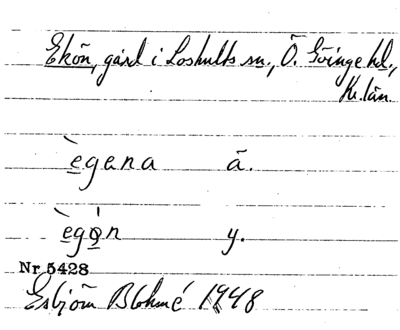 Ekön, gård i Loshults sn., Ö. Göinge hd.,
Kr. län.
ègena ä.
ègo̤n y.
Nr 5428
Esbjörn Blohmé 1948